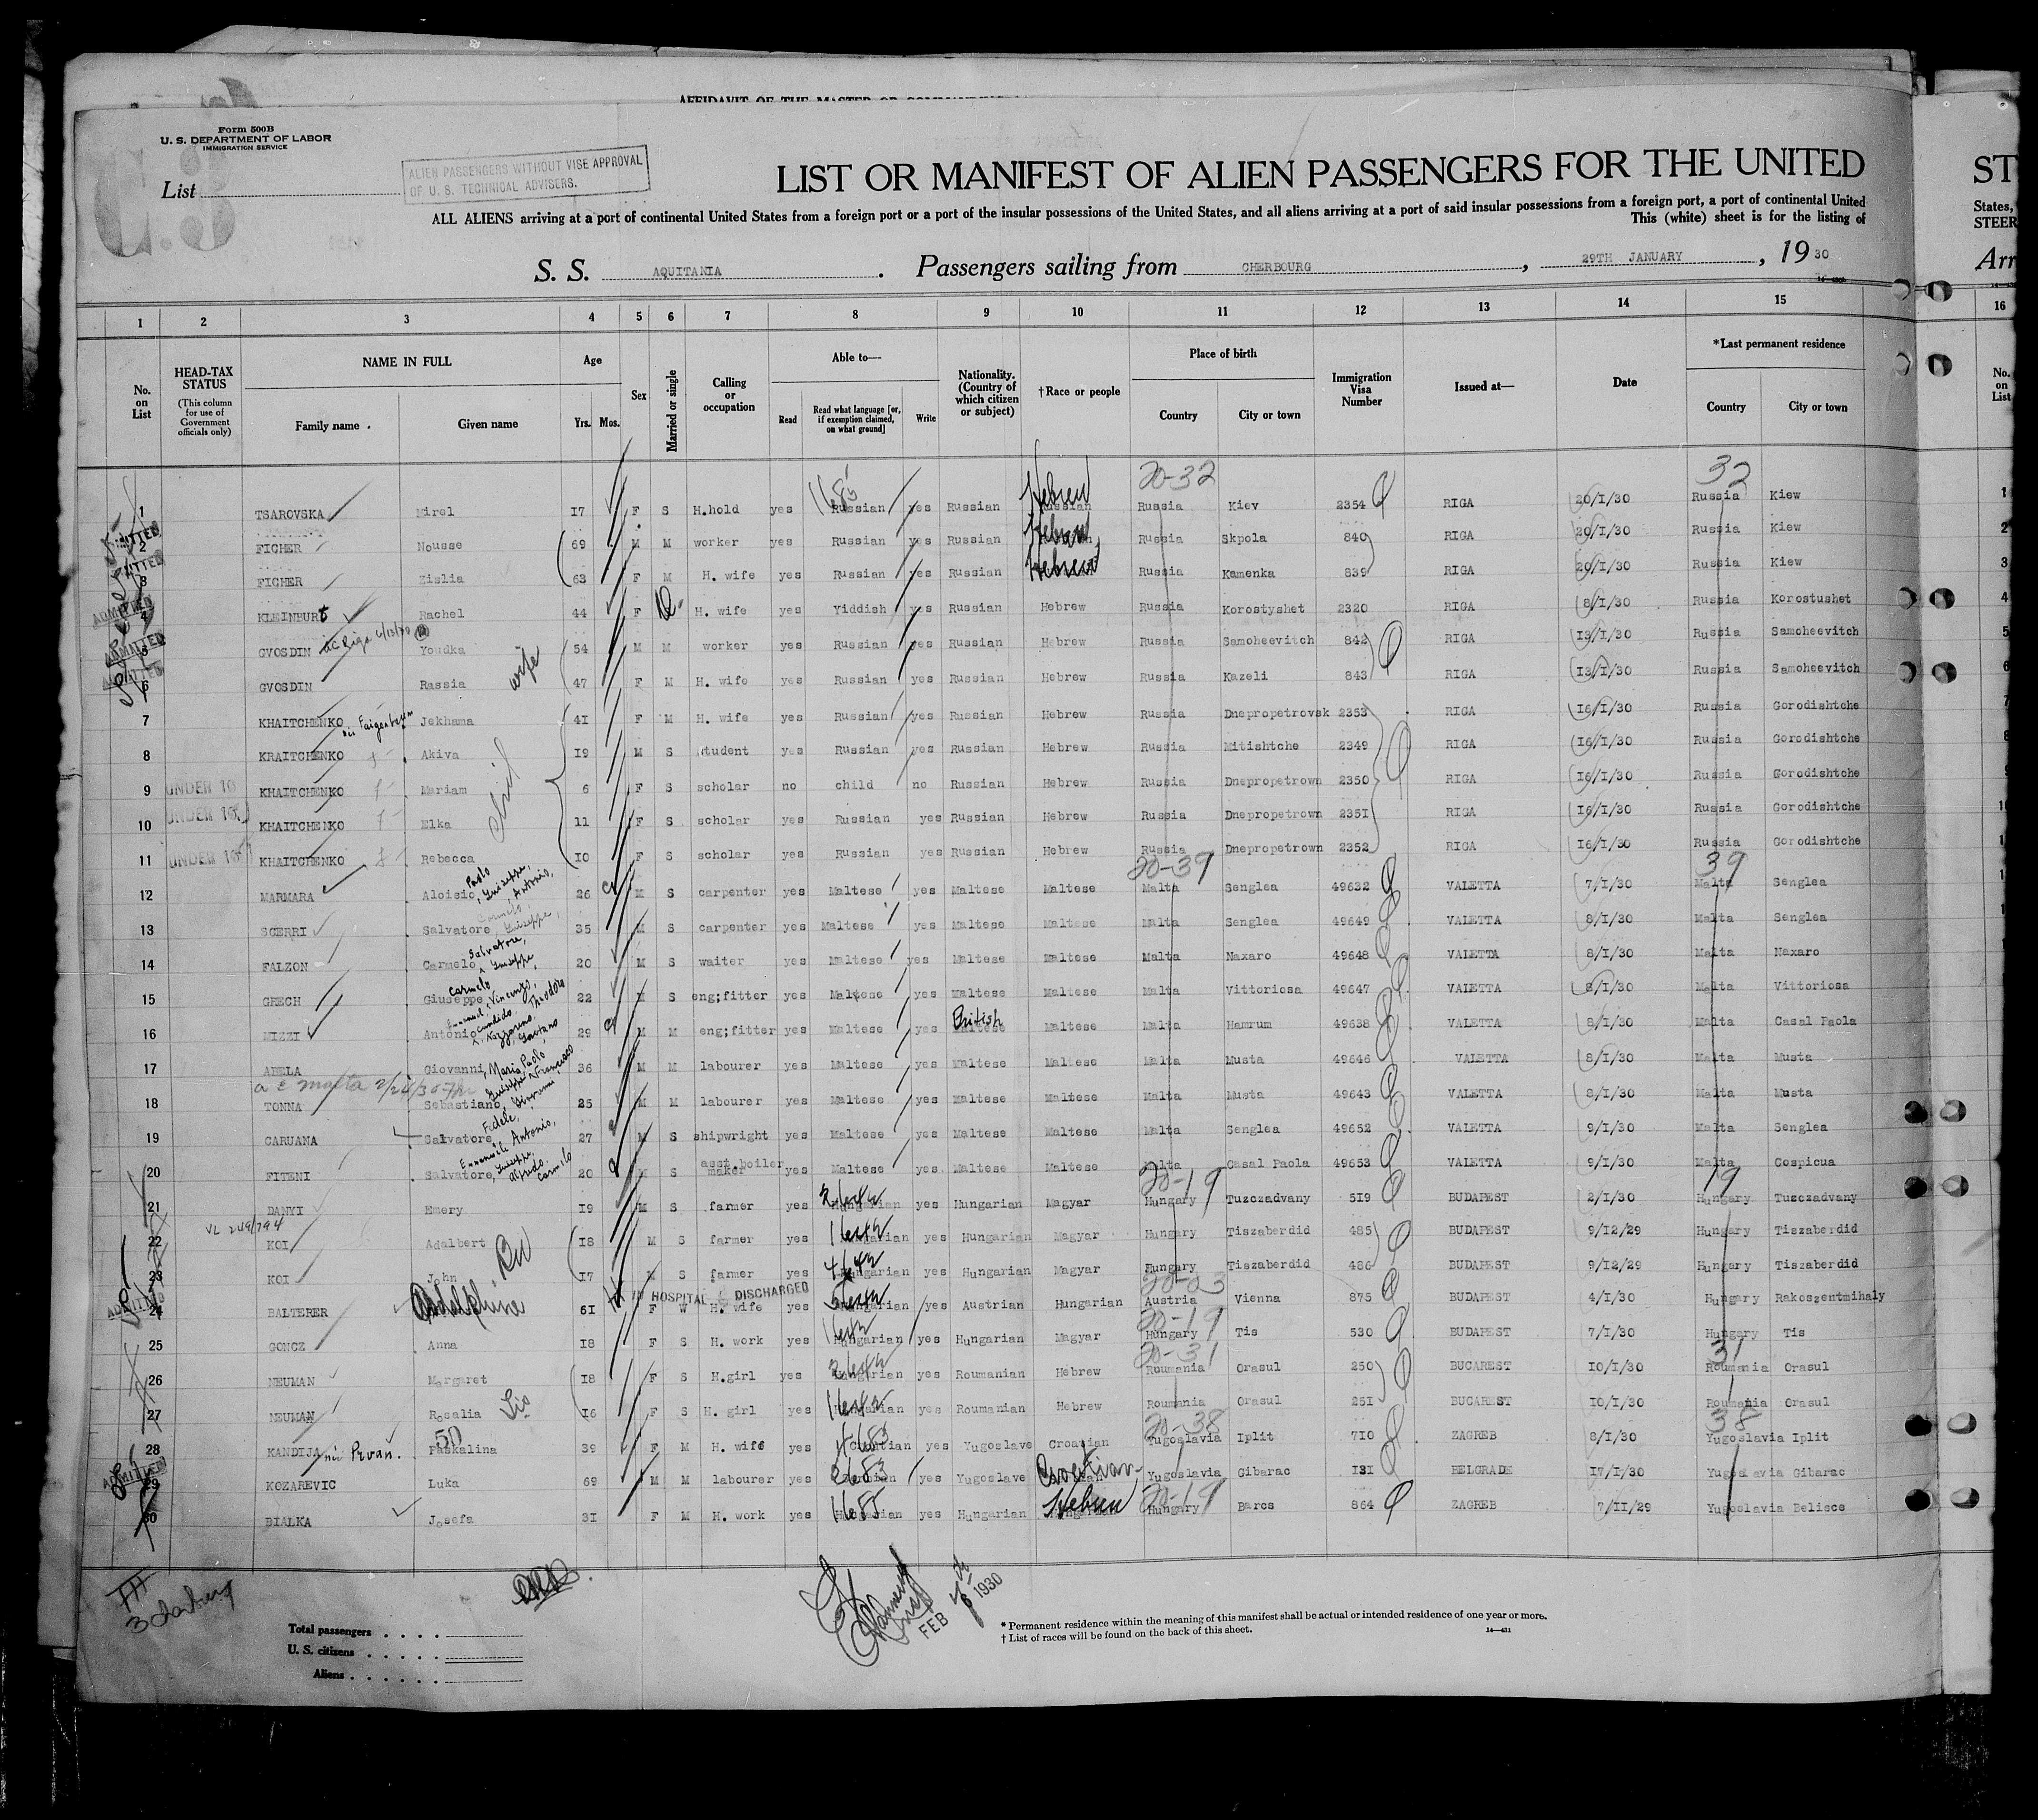 AFFIDAVIT OF THE MASTER OR COMMANDING
Form 500B
U. S. DEPARTMENT OF LABOR
IMMIGRATION SERVICE
List
ALIEN PASSENGERS WITHOUT VISE APPROVAL
OF U. S. TECHNICAL ADVISERS.
LIST OR MANIFEST OF ALIEN PASSENGERS FOR THE UNITED
ST
ALL ALIENS arriving at a port of continental United States from a foreign port or a port of the insular possessions of the United States, and all aliens arriving at a port of said insular possessions from a foreign port, a port of continental United
States,
This (white) sheet is for the listing of
STEER
S. S. AQUITANIA. Passengers sailing from CHERBOURG, 29TH JANUARY, 1930
Arr
1 2 3 4 5 6 7 8 9 10 11 12 13 14 15 16
No. on List
HEAD-TAX STATUS (This column for use of Government officials only)
NAME IN FULL Family name Given name
Age Yrs. Mos.
Sex
Married or single
Calling or occupation
Able to— Read Read what language [or, if exemption claimed, on what ground] Write
Nationality. (Country of which citizen or subject)
†Race or people
Place of birth Country City or town
Immigration Visa Number
Issued at—
Date
*Last permanent residence Country City or town
No. on List
20-32 32
1 TSAROVSKA Mirel 17 F S H.hold yes Russian yes Russian Hebrew Russia Kiev 2354 RIGA 20/1/30 Russia Kiew 1
ADMITTED 2 FICHER Nousse 69 M M worker yes Russian yes Russian Hebrew Russia Skpola 840 RIGA 20/1/30 Russia Kiew 2
ADMITTED 3 FICHER Zislia 63 F M H. wife yes Russian yes Russian Hebrew Russia Kamenka 839 RIGA 20/1/30 Russia Kiew 3
ADMITTED 4 KLEINBURT Rachel 44 F H. wife yes Yiddish yes Russian Hebrew Russia Korostyshet 2320 RIGA 8/1/30 Russia Korostushet 4
ADMITTED 5 GVOSDIN Youdka 54 M M worker yes Russian yes Russian Hebrew Russia Samoheevitch 842 RIGA 13/1/30 Russia Samoheevitch 5
ADMITTED 6 GVOSDIN Rassia wife 47 F M H. wife yes Russian yes Russian Hebrew Russia Kazeli 843 RIGA 13/1/30 Russia Samoheevitch 6
7 KHAITCHENKO Jekhama 41 F M H. wife yes Russian yes Russian Hebrew Russia Dnepropetrovsk 2353 RIGA 16/1/30 Russia Gorodishtche 7
8 KRAITCHENKO Akiva 19 M S student yes Russian yes Russian Hebrew Russia Mitishtche 2349 RIGA 16/1/30 Russia Gorodishtche 8
9 UNDER 16 KHAITCHENKO Mariam 6 F S scholar no child no Russian Hebrew Russia Dnepropetrown 2350 RIGA 16/1/30 Russia Gorodishtche 9
10 UNDER 16 KHAITCHENKO Elka 11 F S scholar yes Russian yes Russian Hebrew Russia Dnepropetrown 2351 RIGA 16/1/30 Russia Gorodishtche 10
11 UNDER 16 KHAITCHENKO Rebecca 10 F S scholar yes Russian yes Russian Hebrew Russia Dnepropetrown 2352 RIGA 16/1/30 Russia Gorodishtche
20-39 39
12 MARMARA Aloisio, Paolo, Guiseppe, Antonio, 26 M S carpenter yes Maltese yes Maltese Maltese Malta Senglea 49632 VALETTA 7/1/30 Malta Senglea
13 SCERRI Salvatore, Carmelo, Guiseppe, 35 M S carpenter yes Maltese yes Maltese Maltese Malta Senglea 49649 VALETTA 8/1/30 Malta Senglea
14 FALZON Carmelo Salvatore, Guiseppe, 20 M S waiter yes Maltese yes Maltese Maltese Malta Naxaro 49648 VALETTA 8/1/30 Malta Naxaro
15 GRECH Giuseppe, Carmelo Vincenzo, 22 M S eng;fitter yes Maltese yes Maltese Maltese Malta Vittoriosa 49647 VALETTA 8/1/30 Malta Vittoriosa
16 MIZZI Antonio 29 M M eng;fitter yes Maltese yes British Maltese Malta Hamrum 49638 VALETTA 8/1/30 Malta Casal Paola
17 ABELA Giovanni, Maria Paolo 36 M M labourer yes Maltese yes Maltese Maltese Malta Musta 49646 VALETTA 8/1/30 Malta Musta
18 TONNA Sebastiano, Giovanni 25 M M labourer yes Maltese yes Maltese Maltese Malta Musta 49643 VALETTA 8/1/30 Malta Musta
19 CARUANA Salvatore, Fedele, Antonio, 27 M S shipwright yes Maltese yes Maltese Maltese Malta Senglea 49652 VALETTA 9/1/30 Malta Senglea
20 FITENI Salvatore, Guiseppe, Alfredo, Carmelo 20 M S asst.boiler maker yes Maltese yes Maltese Maltese Malta Casal Paola 49653 VALETTA 9/1/30 Malta Cospicua
20-19 19
21 DANYI Emery 19 M S farmer yes Hungarian yes Hungarian Magyar Hungary Tuzczadvany 519 BUDAPEST 2/1/30 Hungary Tuzczadvany
VL 249/794
22 KOI Adalbert 18 M S farmer yes Hungarian yes Hungarian Magyar Hungary Tiszaberdid 485 BUDAPEST 9/12/29 Hungary Tiszaberdid
23 KOI John 17 M S farmer yes Hungarian yes Hungarian Magyar Hungary Tiszaberdid 486 BUDAPEST 9/12/29 Hungary Tiszaberdid
IN HOSPITAL DISCHARGED 20-03
ADMITTED 24 BALTERER Adelphina 61 F W H. wife yes Hungarian yes Austrian Hungarian Austria Vienna 875 BUDAPEST 4/1/30 Hungary Rakoszentmihaly
20-19
25 GONCZ Anna 18 F S H. work yes Hungarian yes Hungarian Magyar Hungary Tis 530 BUDAPEST 7/1/30 Hungary Tis
20-31 31
26 NEUMAN Margaret 18 F S H.girl yes Hungarian yes Roumanian Hebrew Roumania Orasul 250 BUCAREST 10/1/30 Roumania Orasul
27 NEUMAN Rosalia Sis 16 F S H. girl yes Hungarian yes Roumanian Hebrew Roumania Orasul 251 BUCAREST 10/1/30 Roumania Orasul
50 20-38 38
28 KANDIJA née Prvan. Paskalina 39 F M H. wife yes Croatian yes Yugoslave Croatian Yugoslavia Iplit 710 ZAGREB 8/1/30 Yugoslavia Iplit
ADMITTED 29 KOZAREVIC Luka 69 M M labourer yes yes Yugoslave Croatian Yugoslavia Gibarac 131 BELGRADE 17/1/30 Yugoslavia Gibarac
20-19
30 BIALKA Josefa 31 F M H. work yes Hungarian yes Hungarian Hebrew Hungary Barcs 864 ZAGREB 7/11/29 Yugoslavia Belisce
Total passengers
U. S. citizens
Aliens
FEB 1930
* Permanent residence within the meaning of this manifest shall be actual or intended residence of one year or more.
† List of races will be found on the back of this sheet.
14—431